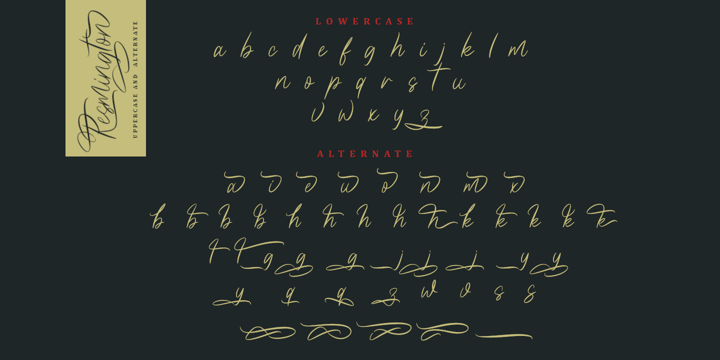 Resmington
UPPERCASE AND ALTERNATE
LOWERCASE
a b c d e f g h i j k l m
n o p q r s t u
v w x y z
ALTERNATE
a i e u o n m x
b b b b h h h h h k k k k k
t t g g g j j j y y
y q q z w o s s